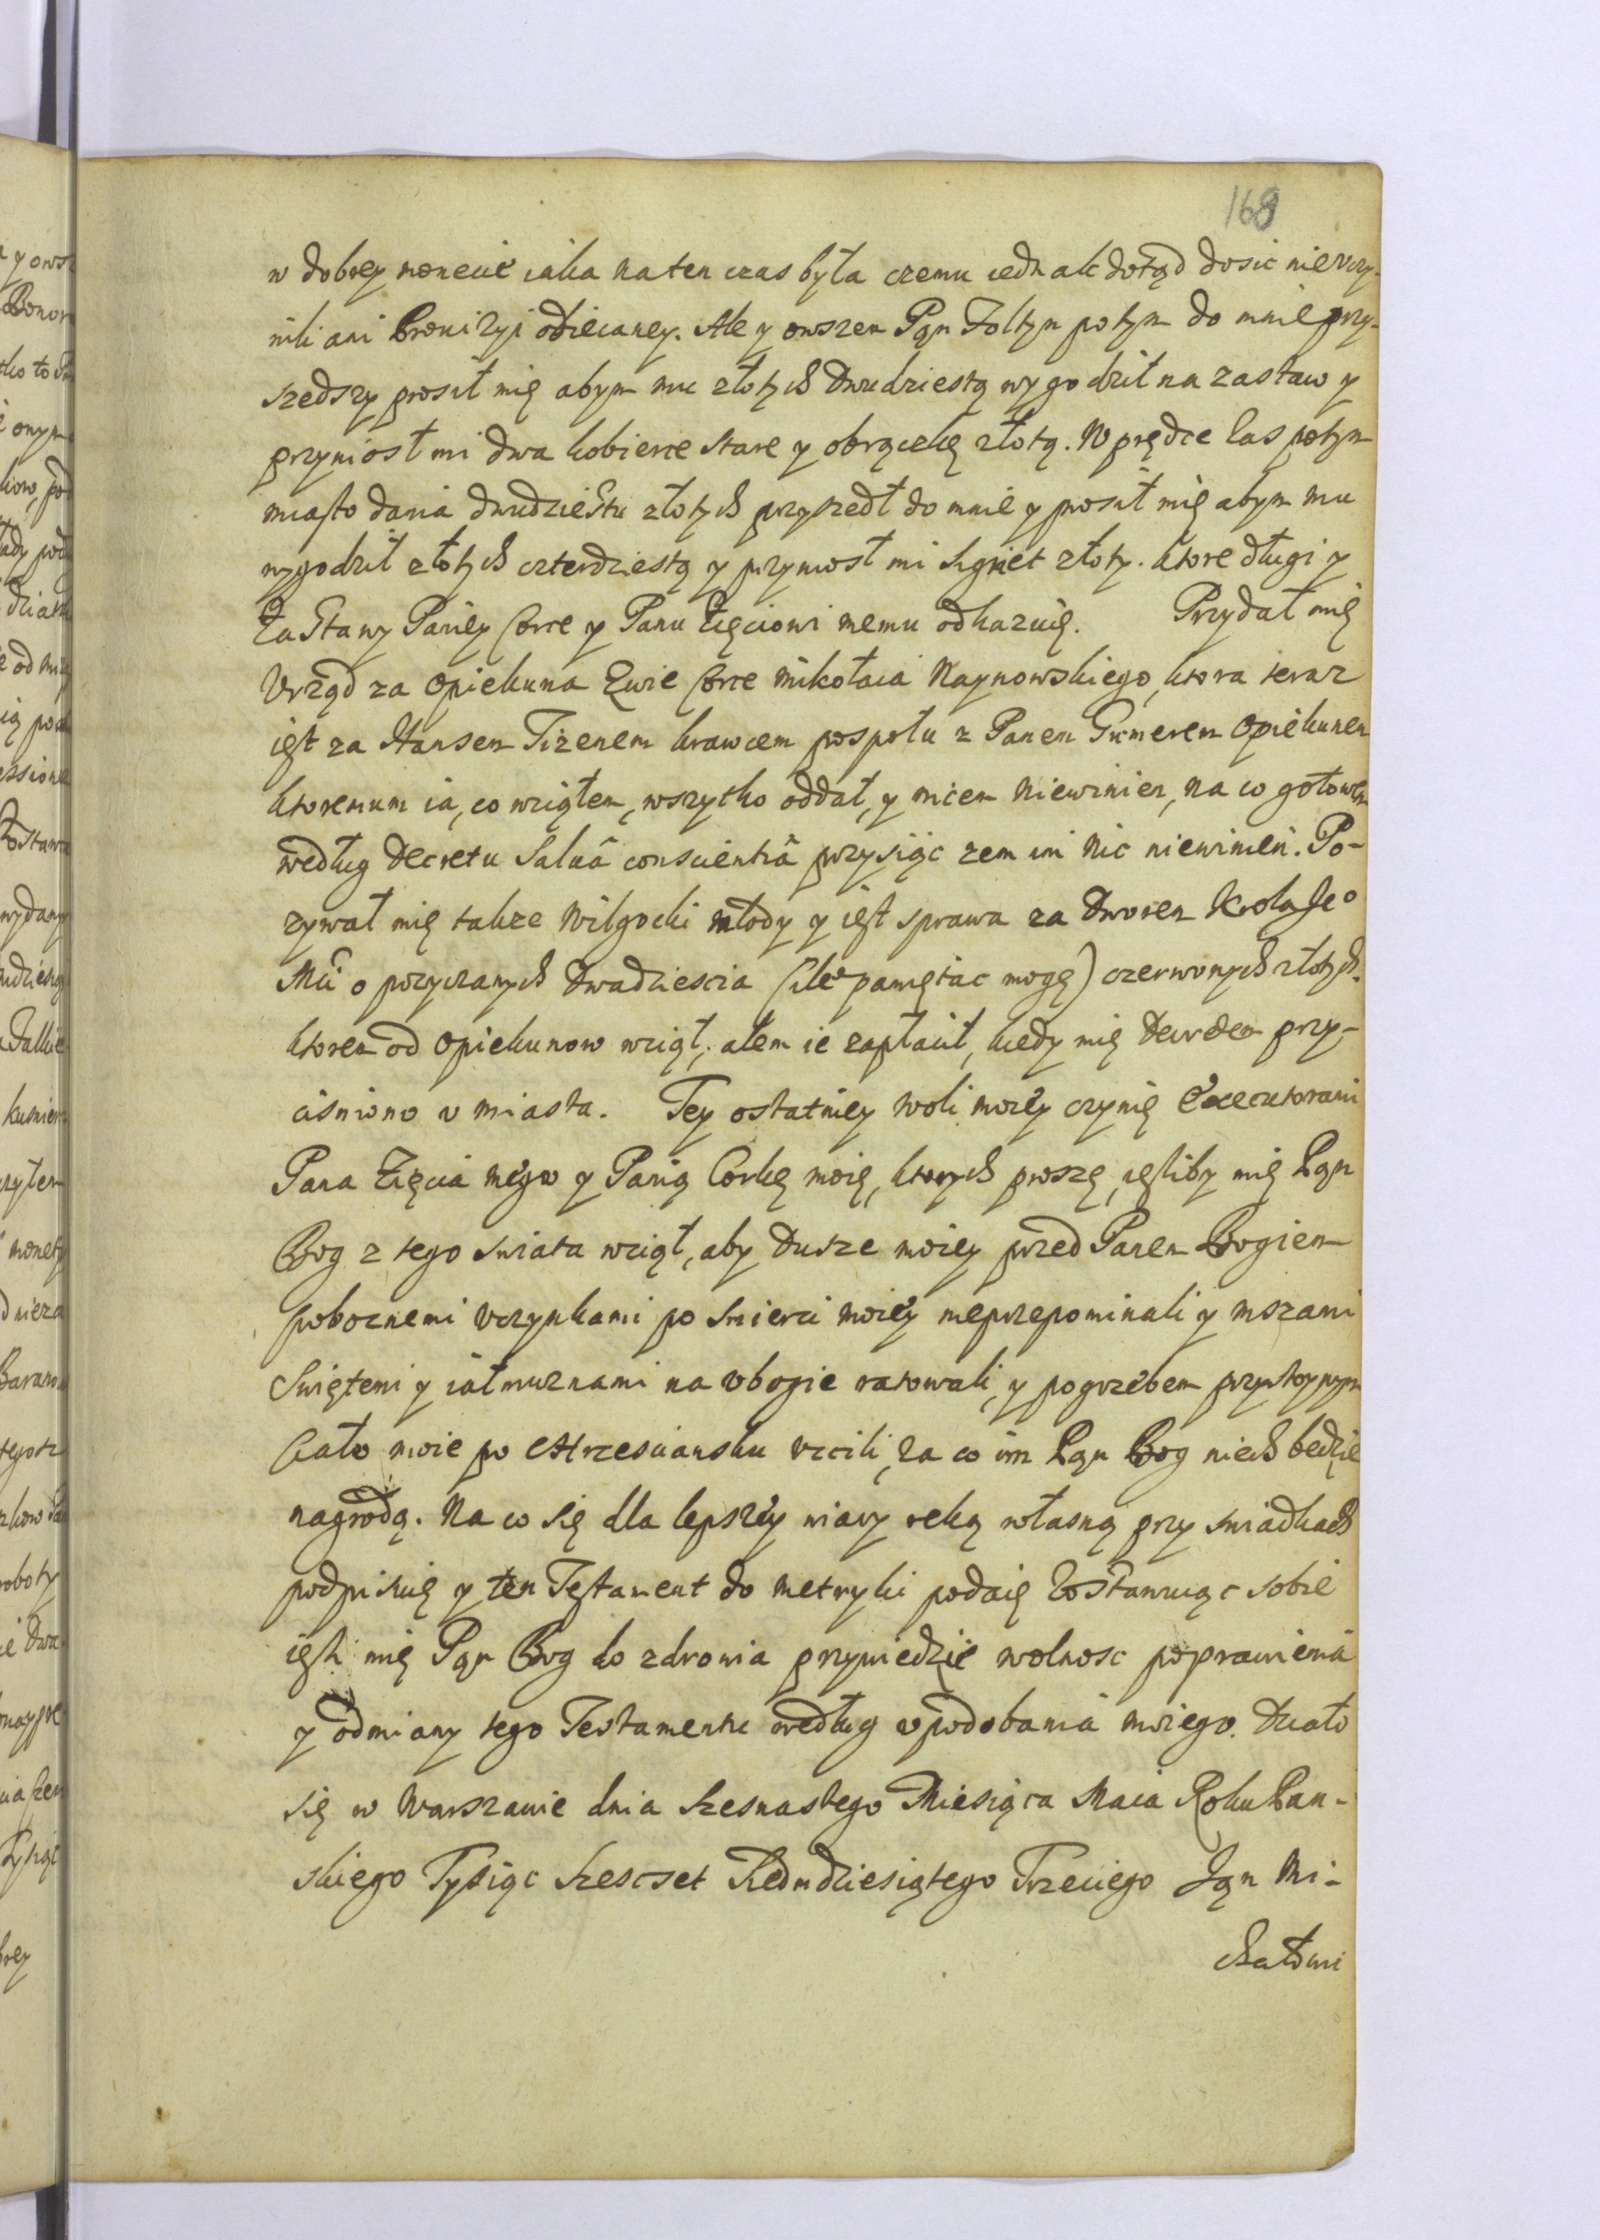 168
w dobrey monecie iaka naten czas była czemu iednak dotąd dosic nie vczy-
nili ani Prowizyi obiecaney. Ale y owszem Pąn Foltyn potym do mnie przy-
szedszy prosił mię abym mu złotych dwudziestą wygodził na zastaw y
przyniosł mi dwa kobierce stare y obrączkę złotą. W prędce zas potym
miasto dania dwudziestu złotych przyszedł do mnie y prosił mię abym mu
wygodził złotych czterdziestą y przyniosł mi sygniet złoty. ktore długi y
Zastawy Paniey Corce y Panu Zięciowi memu odkazuię. Przydał mię
Vrząd za Opiekuna Ewie Corce Mikołaia Raynowskiego, ktora teraz
iest za Hansem Tizenem krawcem pospołu z Panem Gizmerem Opiekunem
ktoremum ia, co wziąłem, wszytko oddał, y niczem niewinien, na co gotowem
według Decretu Saluâ conscientiâ przysiąc zem im nic niewinien. Po-
zywał mię takze Wilgocki młody y iest sprawa za Dworem Krola Jeo
Mći o pozyczanych dwadziescia (ile pamiętac mogę) czerwonych złotych.
ktorem od Opiekunow wziął, alem ie zapłacił, kiedy mię Decretem przy-
cisniono v miasta. Tey ostatniey woli moiey czynię Executorami
Pana Zięcia mego y Panią Corkę moię, ktorych proszę, iesliby mię Pąn
Bog z tego swiata wziął, aby Dusze moiey przed Panem Bogiem
poboznemi vczynkami po smierci moiey nieprzepominali y mszami
Swiętemi y iałmuznami na vbogie ratowali, y pogrzebem przystoynym
Ciało moie po chrzesciansku vczcili, za co im Pąn Bog niech będzie
nagrodą. Na co się dla lepszey wiary ręką własną przy swiadkach
podpisuię y ten Testament do metryki podaię Zostawuiąc sobie
iesli mię Pąn Bog do zdrowia przywiedzie wolnosc poprawienia
y odmiany tego Testamentu według vpodobania moiego. Działo
się w Warszawie dnia szesnastego Miesiąca Maia Roku Pan-
skiego Tysiąc szescset Siedmdziesiątego Trzeciego Jąn Mi-
chałowi